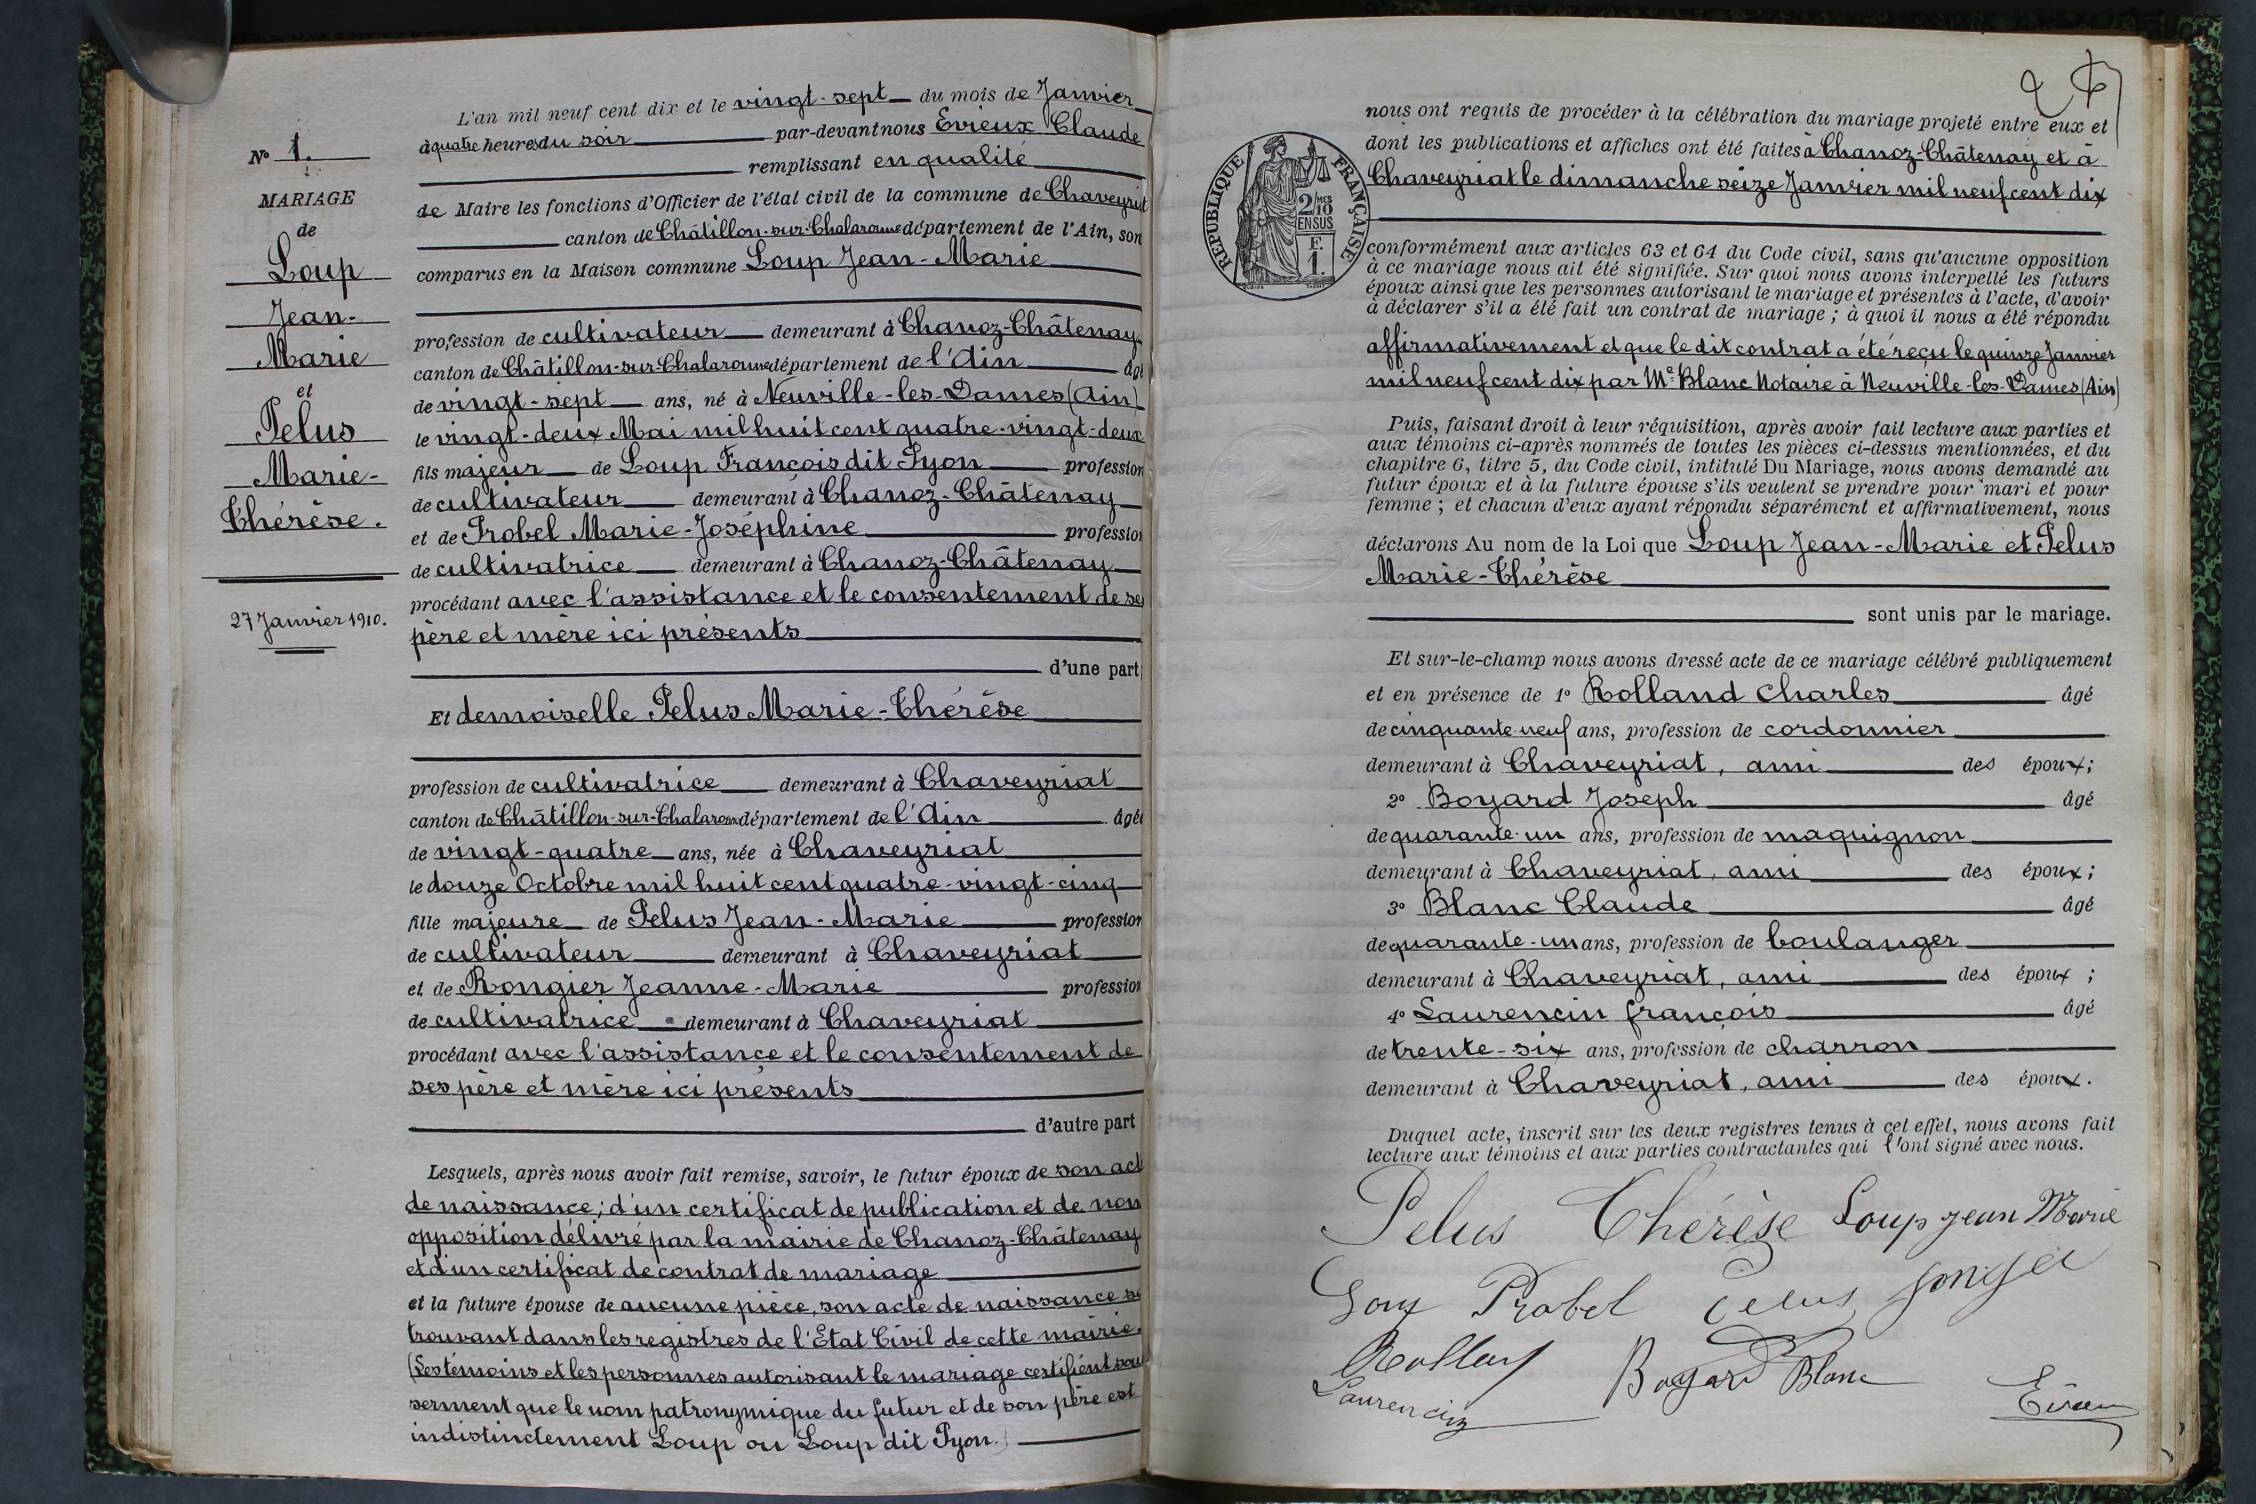 N° 1.
MARIAGE
de
Loup
Jean-
Marie
et
Pelus
Marie-
Thérèse.
27 Janvier 1910.
L'an mil neuf cent dix et le vingt-sept du mois de Janvier
à quatre heures du soir par-devant nous Evieux Claude
remplissant en qualité
de Maire les fonctions d'Officier de l'état civil de la commune de Chaveyriat
canton de Châtillon-sur-Chalaronne département de l'Ain, son
comparus en la Maison commune Loup Jean-Marie
profession de cultivateur demeurant à Chanoz-Châtenay
canton de Châtillon-sur-Chalaronne département de l'Ain âgé
de vingt-sept ans, né à Neuville-les-Dames (Ain)
le vingt-deux Mai mil huit cent quatre-vingt-deux
fils majeur de Loup François dit Pyon profession
de cultivateur demeurant à Chanoz-Châtenay
et de Probel Marie-Joséphine profession
de cultivatrice demeurant à Chanoz-Châtenay
procédant avec l'assistance et le consentement de ses
père et mère ici présents
d'une part
Et demoiselle Pelus Marie-Thérèse
profession de cultivatrice demeurant à Chaveyriat
canton de Châtillon-sur-Chalaronne département de l'Ain âgée
de vingt-quatre ans, née à Chaveyriat
le douze Octobre mil huit cent quatre-vingt-cinq
fille majeure de Pelus Jean-Marie profession
de cultivateur demeurant à Chaveyriat
et de Rongier Jeanne-Marie profession
de cultivatrice demeurant à Chaveyriat
procédant avec l'assistance et le consentement de
ses père et mère ici présents
d'autre part
Lesquels, après nous avoir fait remise, savoir, le futur époux de son act
de naissance; d'un certificat de publication et de non
opposition délivré par la mairie de Chanoz-Châtenay
et d'un certificat de contrat de mariage
et la future épouse de aucune pièce, son acte de naissance se
trouvant dans les registres de l'Etat Civil de cette mairie.
(Les témoins et les personnes autorisant le mariage certifient sou
serment que le nom patronymique du futur et de son père est
indistinctement Loup ou Loup dit Pyon.)
nous ont requis de procéder à la célébration du mariage projeté entre eux et
dont les publications et affiches ont été faites à Chanoz-Châtenay et à
Chaveyriat le dimanche seize Janvier mil neuf cent dix
RÉPUBLIQUE FRANÇAISE
2/10 MES
EN SUS
F.
1.
conformément aux articles 63 et 64 du Code civil, sans qu'aucune opposition
à ce mariage nous ait été signifiée. Sur quoi nous avons interpellé les futurs
époux ainsi que les personnes autorisant le mariage et présentes à l'acte, d'avoir
à déclarer s'il a été fait un contrat de mariage ; à quoi il nous a été répondu
affirmativement et que le dit contrat a été reçu le quinze Janvier
mil neuf cent dix par Me Blanc Notaire à Neuville-les-Dames (Ain)
Puis, faisant droit à leur réquisition, après avoir fait lecture aux parties et
aux témoins ci-après nommés de toutes les pièces ci-dessus mentionnées, et du
chapitre 6, titre 5, du Code civil, intitulé Du Mariage, nous avons demandé au
futur époux et à la future épouse s'ils veulent se prendre pour mari et pour
femme ; et chacun d'eux ayant répondu séparément et affirmativement, nous
déclarons Au nom de la Loi que Loup Jean-Marie et Pelus
Marie-Thérèse
sont unis par le mariage.
Et sur-le-champ nous avons dressé acte de ce mariage célébré publiquement
et en présence de 1° Rolland Charles âgé
de cinquante-neuf ans, profession de cordonnier
demeurant à Chaveyriat, ami des époux;
2° Boyard Joseph âgé
de quarante-un ans, profession de maquignon
demeurant à Chaveyriat, ami des époux;
3° Blanc Claude âgé
de quarante-un ans, profession de boulanger
demeurant à Chaveyriat, ami des époux ;
4° Laurencin françois âgé
de trente-six ans, profession de charron
demeurant à Chaveyriat, ami des époux.
Duquel acte, inscrit sur les deux registres tenus à cet effet, nous avons fait
lecture aux témoins et aux parties contractantes qui l'ont signé avec nous.
Pelus Thérèse Loup Jean Marie
Probel Pelus
Boyard Blanc
Laurencin